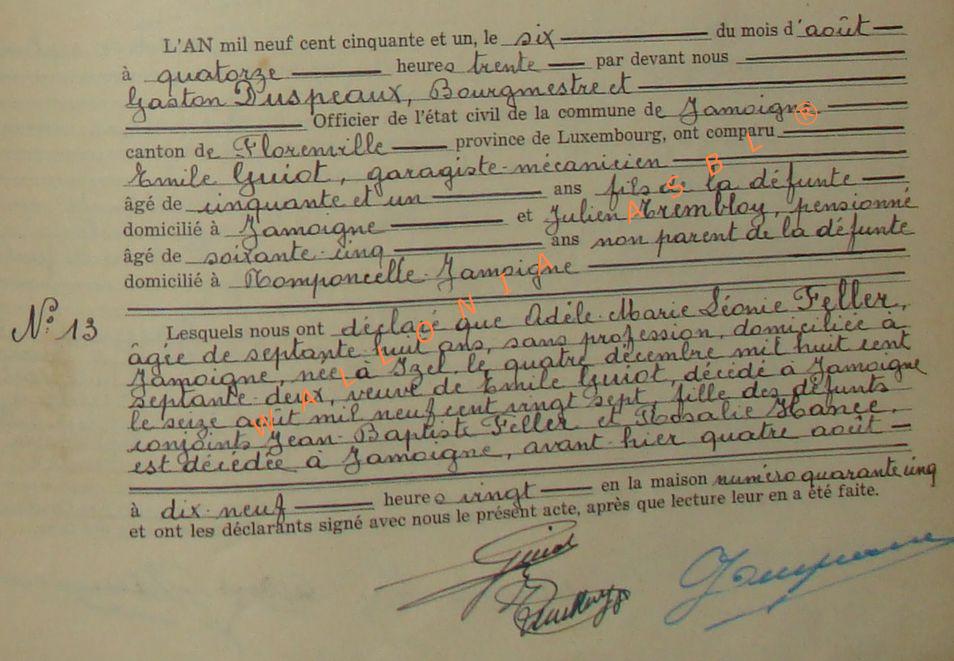 L'AN mil neuf cent cinquante et un, le six du mois d'août
à quatorze heures trente par devant nous
Gaston Duspeaux, Bourgmestre et
Officier de l'état civil de la commune de Jamoigne
canton de Florenville province de Luxembourg, ont comparu
Emile Guiot, garagiste-mécanicien
âgé de cinquante et un ans fils de la défunte
domicilié à Jamoigne et Julien Trembloy, pensionné
âgé de soixante-cinq ans non parent de la défunte
domicilié à Romponcelle-Jamoigne
N° 13
Lesquels nous ont déclaré que Adèle-Marie Léonie Feller,
âgée de septante-huit ans, sans profession, domiciliée à
Jamoigne, née à Izel, le quatre décembre mil huit cent
septante-deux, veuve de Emile Guiot, décédé à Jamoigne
le seize août mil neuf cent vingt sept, fille des défunts
conjoints Jean-Baptiste Feller et Rosalie Hance,
est décédée à Jamoigne, avant-hier quatre août
à dix-neuf heures vingt en la maison numéro quarante cinq
et ont les déclarants signé avec nous le présent acte, après que lecture leur en a été faite.
Guiot
WALLONIA ASBL ®